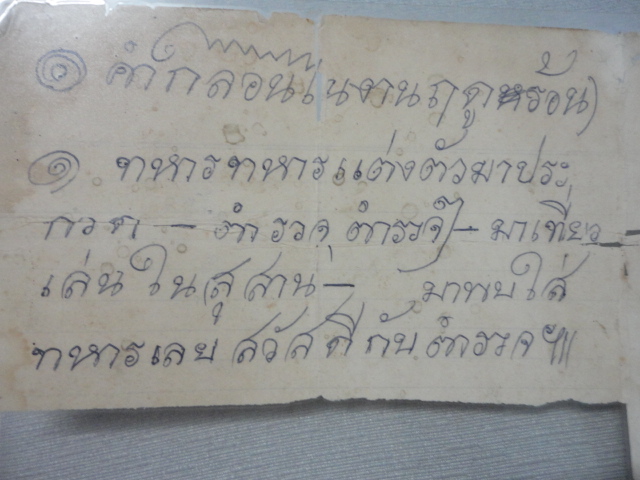 ๑ คำกลอนในงานฤดูหร้อน)
๑ ทหารทหารแต่งตัวมาประ
กวด — ตำรวจ ตำรวจ — มาเที่ยว
เล่นในสุสาน — มาพบใส่
ทหารเลยสวัสดีกับตำรวจฯ